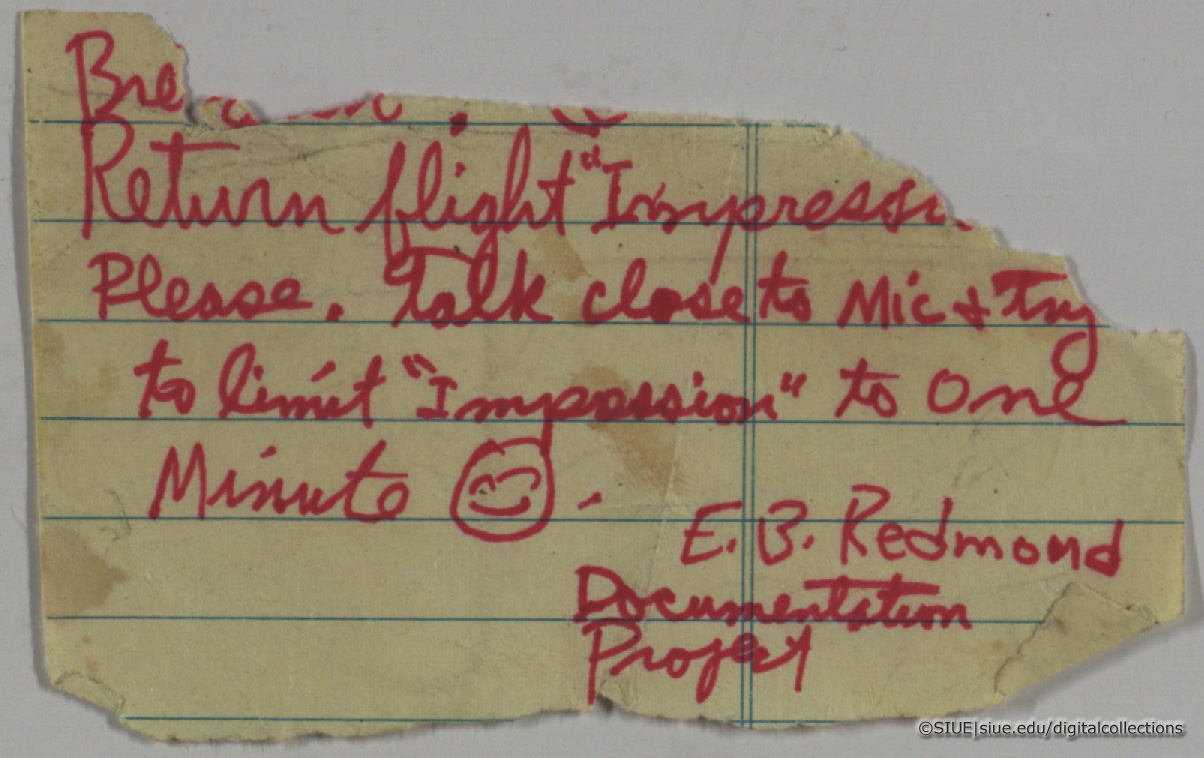 Bre
Return flight "Impressi
Please. Talk close to Mic & Try
to limit "Impession" to One
Minute ☺.
E.B. Redmond
Documentation
Project
©SIUE|siue.edu/digitalcollections